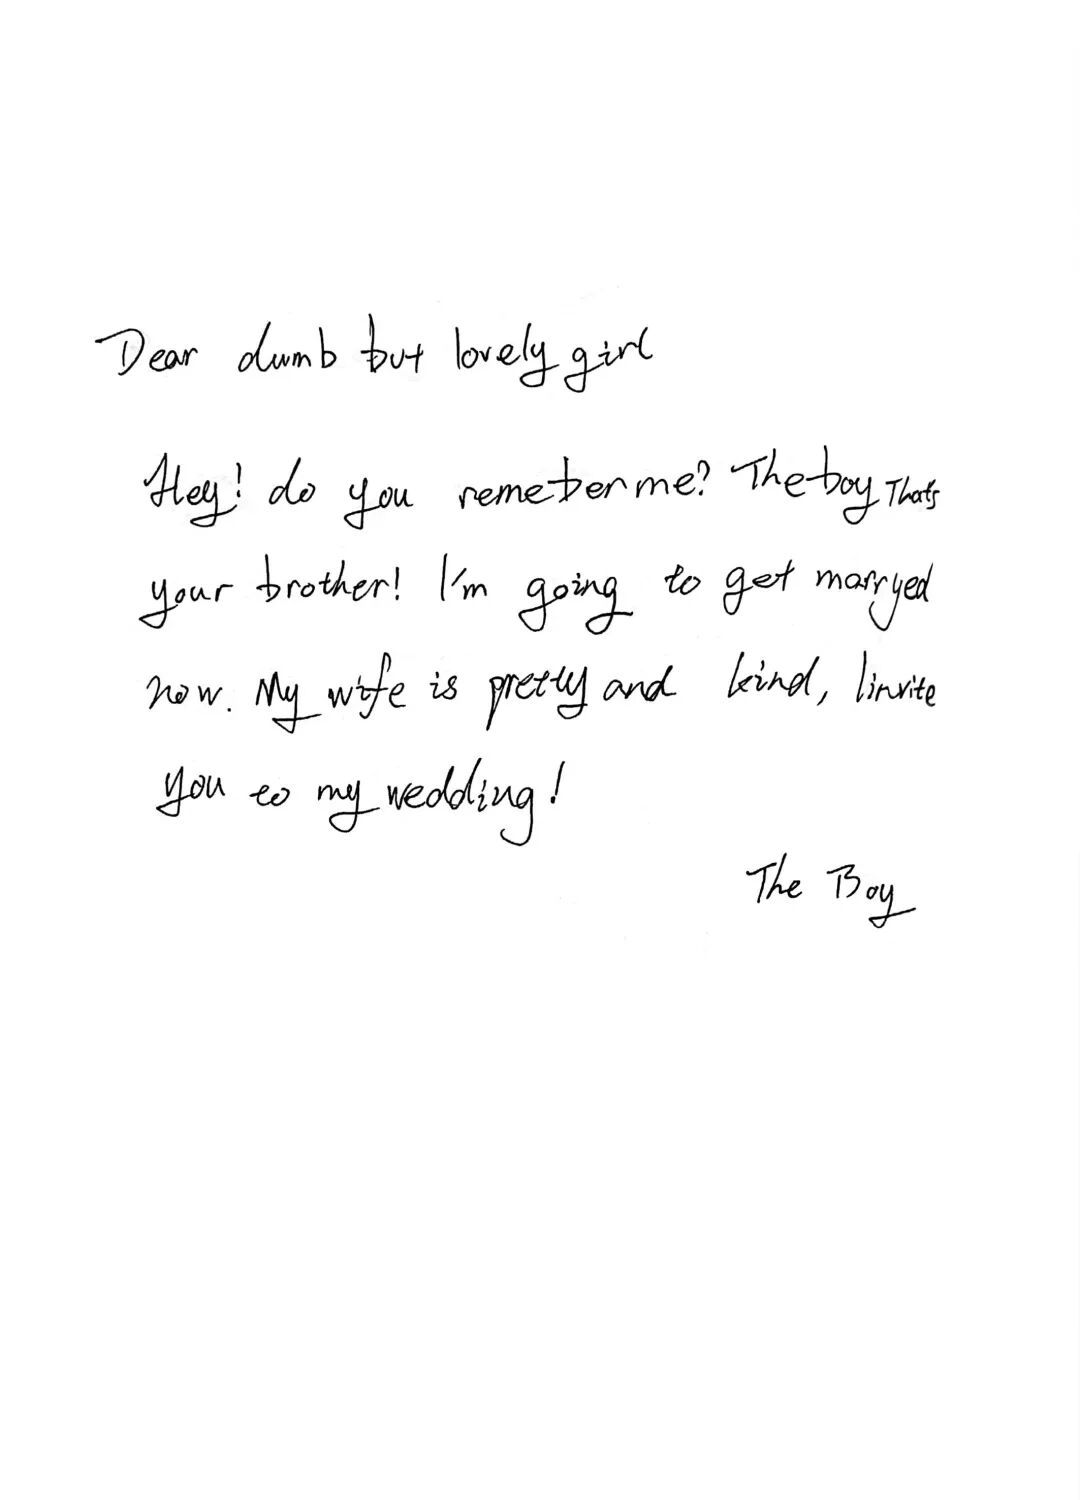 Dear dumb but lovely girl
Hey! do you remeber me? The boy Thats
your brother! I'm going to get marryed
now. My wife is pretty and kind, I invite
you to my wedding!
The Boy